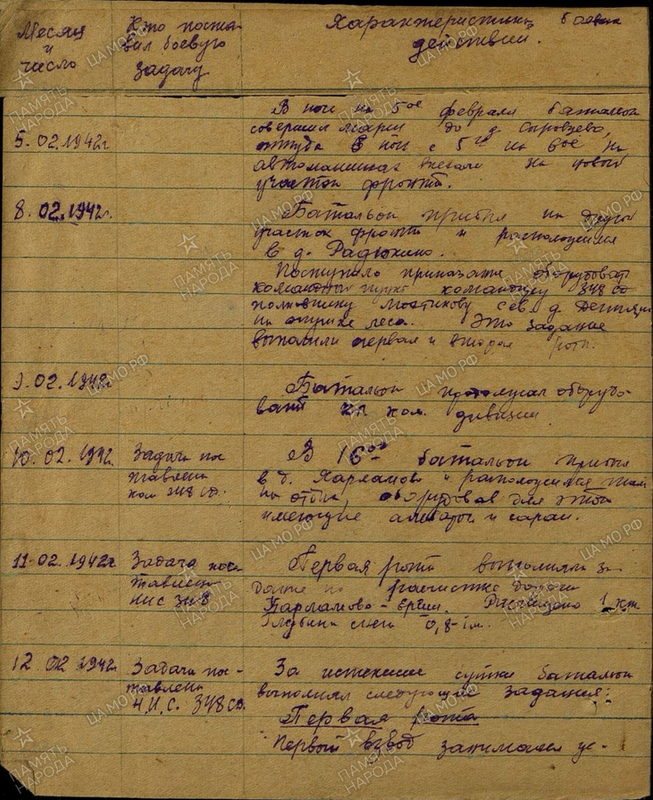 Месяц
и
число
Кто поста-
вил боевую
задачу
Характеристика боевых
действий.
5.02.1942г
В ночь на 5ое февраля батальон
совершил марш до д.
оттуда в ночь с 5 на
автомашинах выехали на новый
участок фронта.
8.02.1942г.
Батальон прибыл на другой
участок фронта и расположился
в д. Радюкино.
Поступило приказание оборудовать
командный пункт командиру 348 сд
полковнику сев. д.
на опушке леса. Это задание
выполнили первая и вторая роты.
9.02.1942г.
Батальон продолжал оборудо-
вать кп ком. дивизии.
10.02.1942г.
Задача пос
тавлена
ком 348 сд.
В 16 00 батальон прибыл
в д. Харламово и расположился там
на отдых, оборудовав для этой
имеющие и сараи.
11.02.1942г
Задача пос
тавлена
НИС 348
Первая рота выполняла за-
дание по расчистке дороги
Харламово - Расчищено 1 км
Глубина снега 0,8-1м.
12.02.1942г
Задача пос-
тавлена
Н.И.С. 348 сд.
За истекшие сутки батальон
выполнял следующие задания:
Первая рота
Первый взвод занимался ус-
ПАМЯТЬ
НАРОДА
ЦАМО.РФ